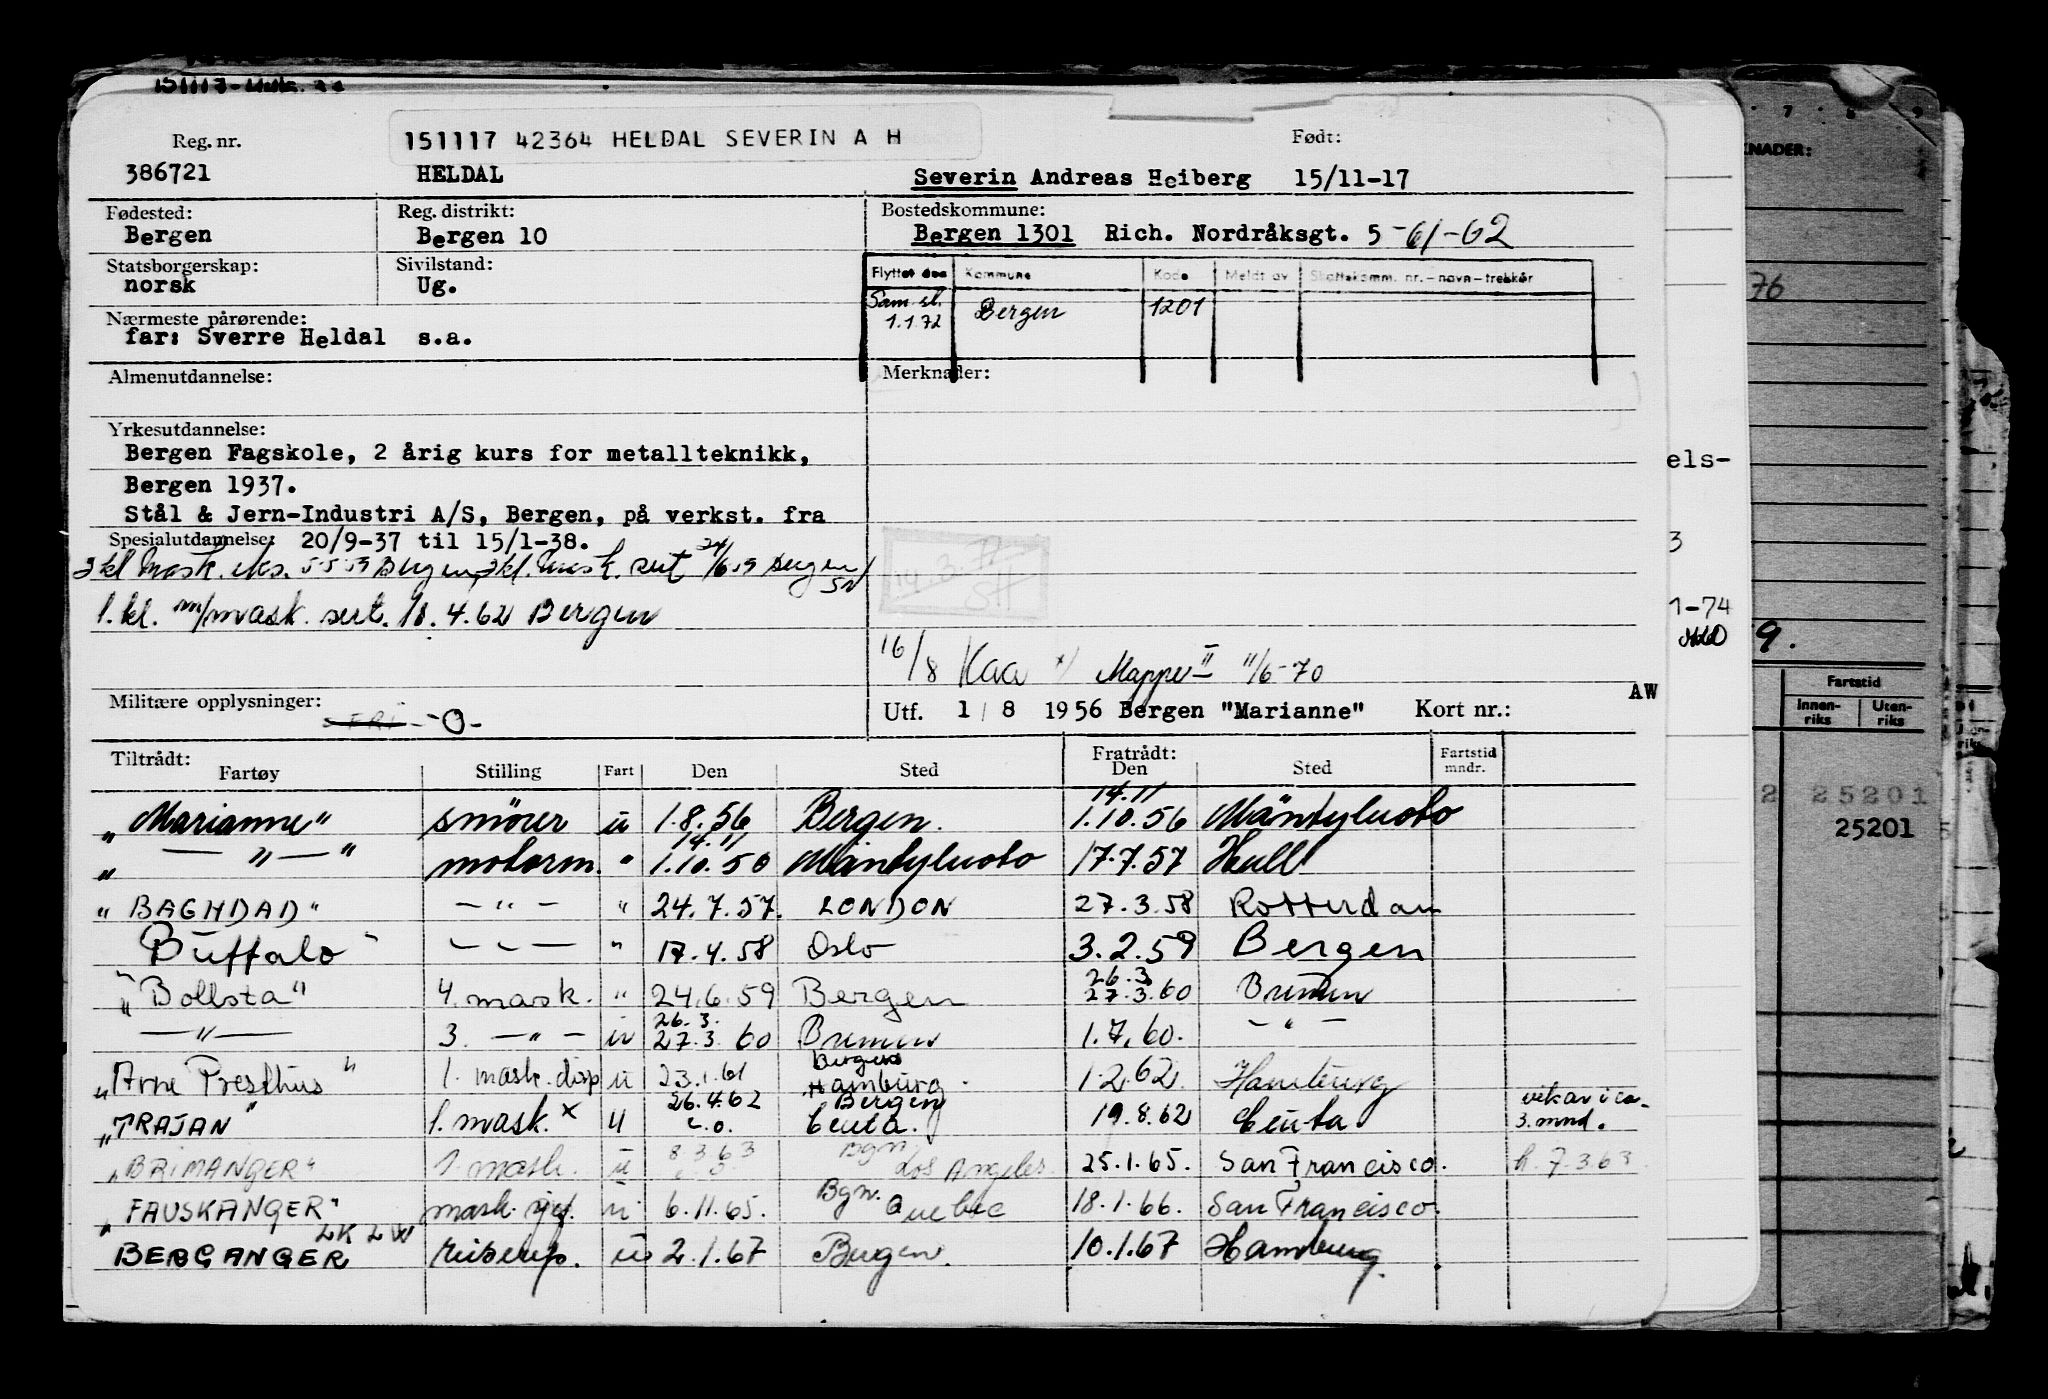 Reg. nr.
151117 42364 HELDAL SEVERIN A H
Født:
386721 HELDAL Severin Andreas Heiberg 15/11-17
Fødested: Reg. distrikt: Bostedskommune:
Bergen Bergen 10 Bergen 1301 Rich. Nordråksgt. 5 -61-62
Statsborgerskap: Sivilstand:
norsk Ug.
Flyttet den Kommune Kode Meldt av Skattekomm. nr. - navn - trekkår
Sam. sl. 1.1.72 Bergen 1201
Nærmeste pårørende:
far: Sverre Heldal s.a.
Almenutdannelse: Merknader:
Yrkesutdannelse:
Bergen Fagskole, 2 årig kurs for metallteknikk,
Bergen 1937.
Stål & Jern-Industri A/S, Bergen, på verkst. fra
Spesialutdannelse: 20/9-37 til 15/1-38.
Mask. eks. 5.5.59 Bergen, kl. Mask. sert 24/6.59 Bergen
1. kl. m/mask. sert. 18.4.62 Bergen
14.3.
SH
16/8 Kaa x) Mappe II 11/6-70
Militære opplysninger: -O-
Utf. 1/8 1956 Bergen "Marianne" Kort nr.:
AW
Tiltrådt: Fratrådt:
Fartøy Stilling Fart Den Sted Den Sted Fartstid mndr.
14.11
"Marianne" smører u 1.8.56 Bergen. 1.10.56 Mäntyluoto
14.11
" — " — " motorm. " 1.10.56 Mäntyluoto 17.7.57 Hull
"BAGHDAD" — " — " 24.7.57. LONDON 27.3.58 Rotterdam
Buffalo" — " — " 17.4.58 Oslo 3.2.59 Bergen
26.3
"Bollsta" 4. mask. " 24.6.59 Bergen 27.3.60 Bremen
26.3.
— " — 3. — " — u 27.3.60 Bremen 1.7.60. — " —
Bergen
"Arne Presthus" 1. mask. disp u 23.1.61 Hamburg. 1.2.62. Hamburg
26.4.62 Bergen
"TRAJAN" 1. mask. x u Ceuta. 19.8.62 Ceuta vikar i ca. 3. mnd.
8 3 63 Bgn
"BRIMANGER" 1. mask. u Los Angeles. 25.1.65. San Francisco. h. 7.3.63
Bgn.
"FAUSKANGER" mask. u 6.11.65. Quebec 18.1.66. San Francisco.
LK LW
BERGANGER u 2.1.67 Bergen. 10.1.67 Hamburg.
KNADER:
7 8 9
76
els-
3
1-74
9.
Fartstid
Innen-riks Uten-riks
2 25201
25201